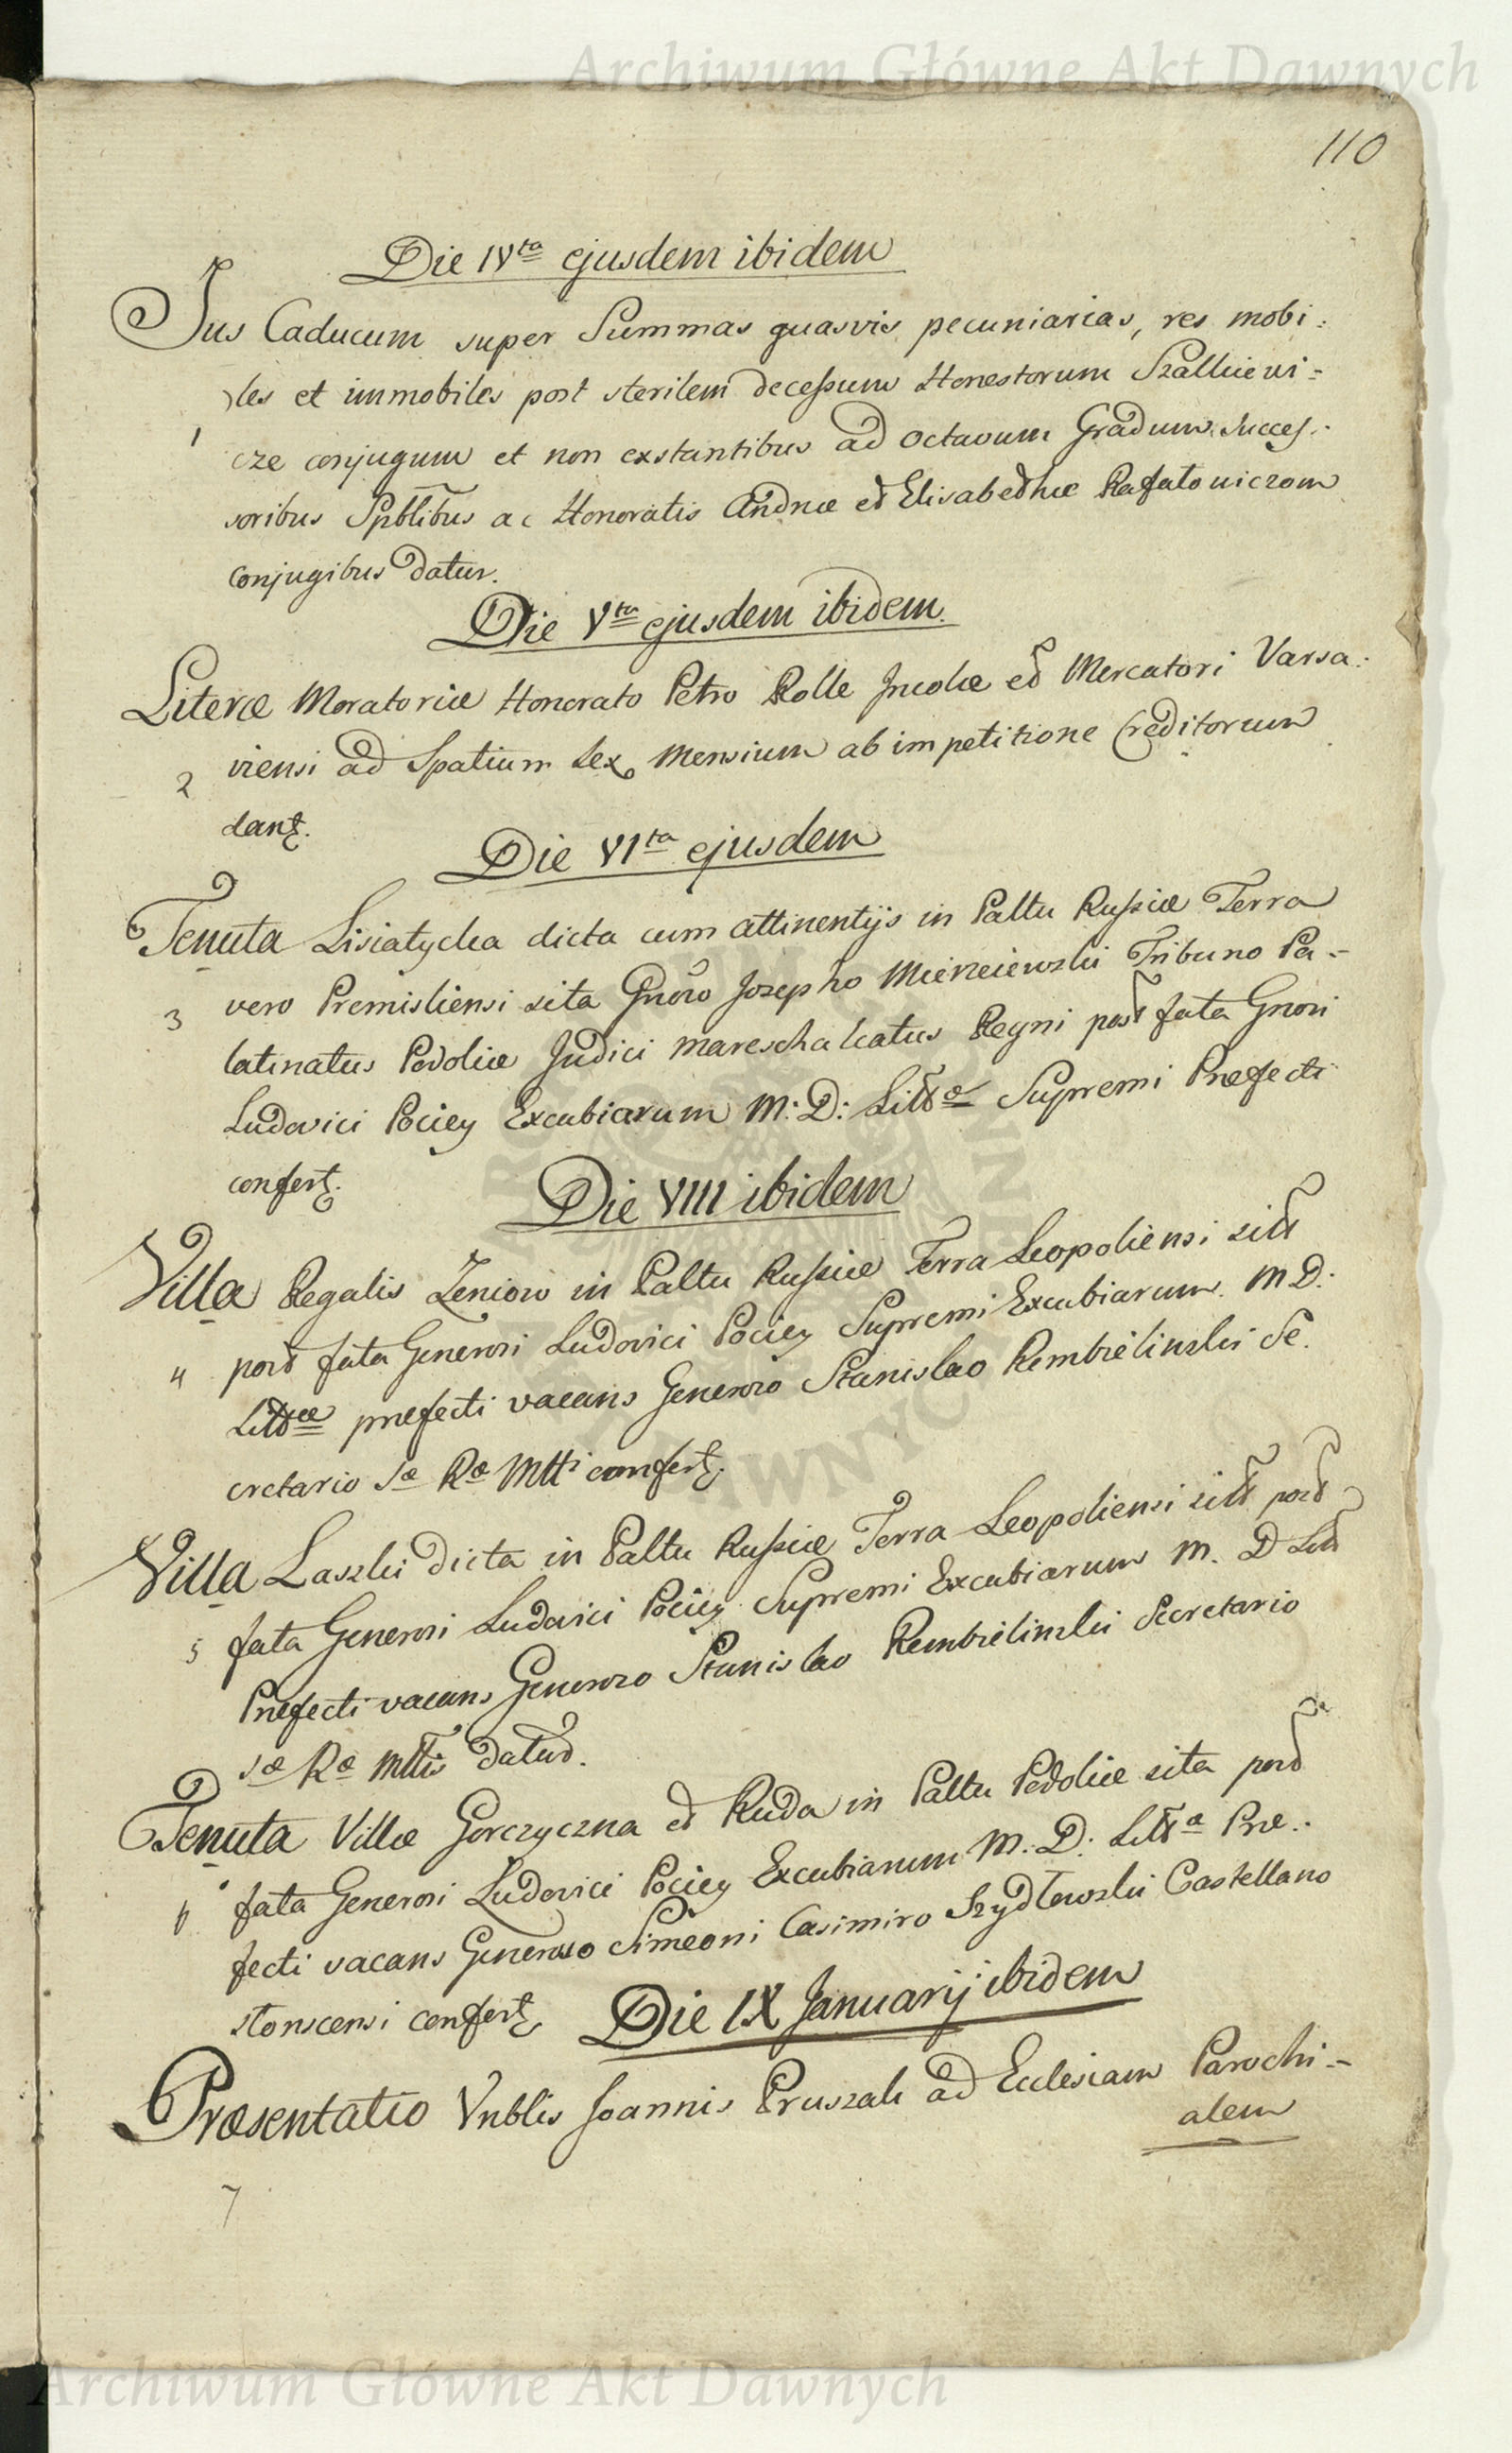 Archiwum Główne Akt Dawnych
110
Die IVta ejusdem ibidem
Jus Caducum super Summas quasvis pecuniarias, res mobi:
les et immobiles post sterilem decessum Honestorum Szalkiewi=
1 cze conjugum et non exstantibus ad octavum Gradum succes:
soribus Spbtlibus ac Honoratis Andræ et Elisabethæ Rafatowiczom
conjugibus datur.
Die Vta ejusdem ibidem.
Literæ Moratoriæ Honorato Petro Rolle Incolæ et Mercatori Varsa:
2 viensi ad Spatium sex Mensium ab impetitione Creditorum
dant.
Die VIta ejusdem
Tenuta Lisiatycka dicta cum attinentijs in Paltu Russiæ Terra
3 vero Premisliensi sita Gnoro Josepho Mierzeiewski Tribuno Pa=
latinatus Podoliæ Judici Mareschalcatus Regni post fata Gnori
Ludovici Pociey Excubiarum M: D: Littæ Supremi Præfecti
confert.
Die VIII ibidem
Villa Regalis Zeniow in Paltu Russiæ Terra Leopoliensi sitt
4 post fata Generosi Ludovici Pociey Supremi Excubiarum M D:
Littæ præfecti vacans Generoso Stanislao Rembielinski Se.
cretario Sæ Ræ Mtti confert.
Villa Laszki dicta in Paltu Russiæ Terra Leopoliensi sitt post
5 fata Generosi Ludovici Pociey Supremi Excubiarum M. D Litt
Præfecti vacans Generoso Stanislao Rembielinski Secretario
Sæ Ræ Mttis datur.
Tenuta Villæ Gorczyczna et Ruda in Paltu Podoliæ sita post
6 fata Generosi Ludovici Pociey Excubiarum M. D: Littæ Præ:
fecti vacans Generoso Simeoni Casimiro Szydłowski Castellano
słonscensi confert
Die IX Januarij ibidem
Præsentatio Vnblis Joannis Pruszak ad Ecclesiam Parochi=
alem
7
Archiwum Główne Akt Dawnych